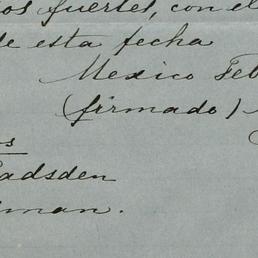 os fuertes, con el
de esta fecha
Mexico Feb
(firmado)
os
Gadsden
man.